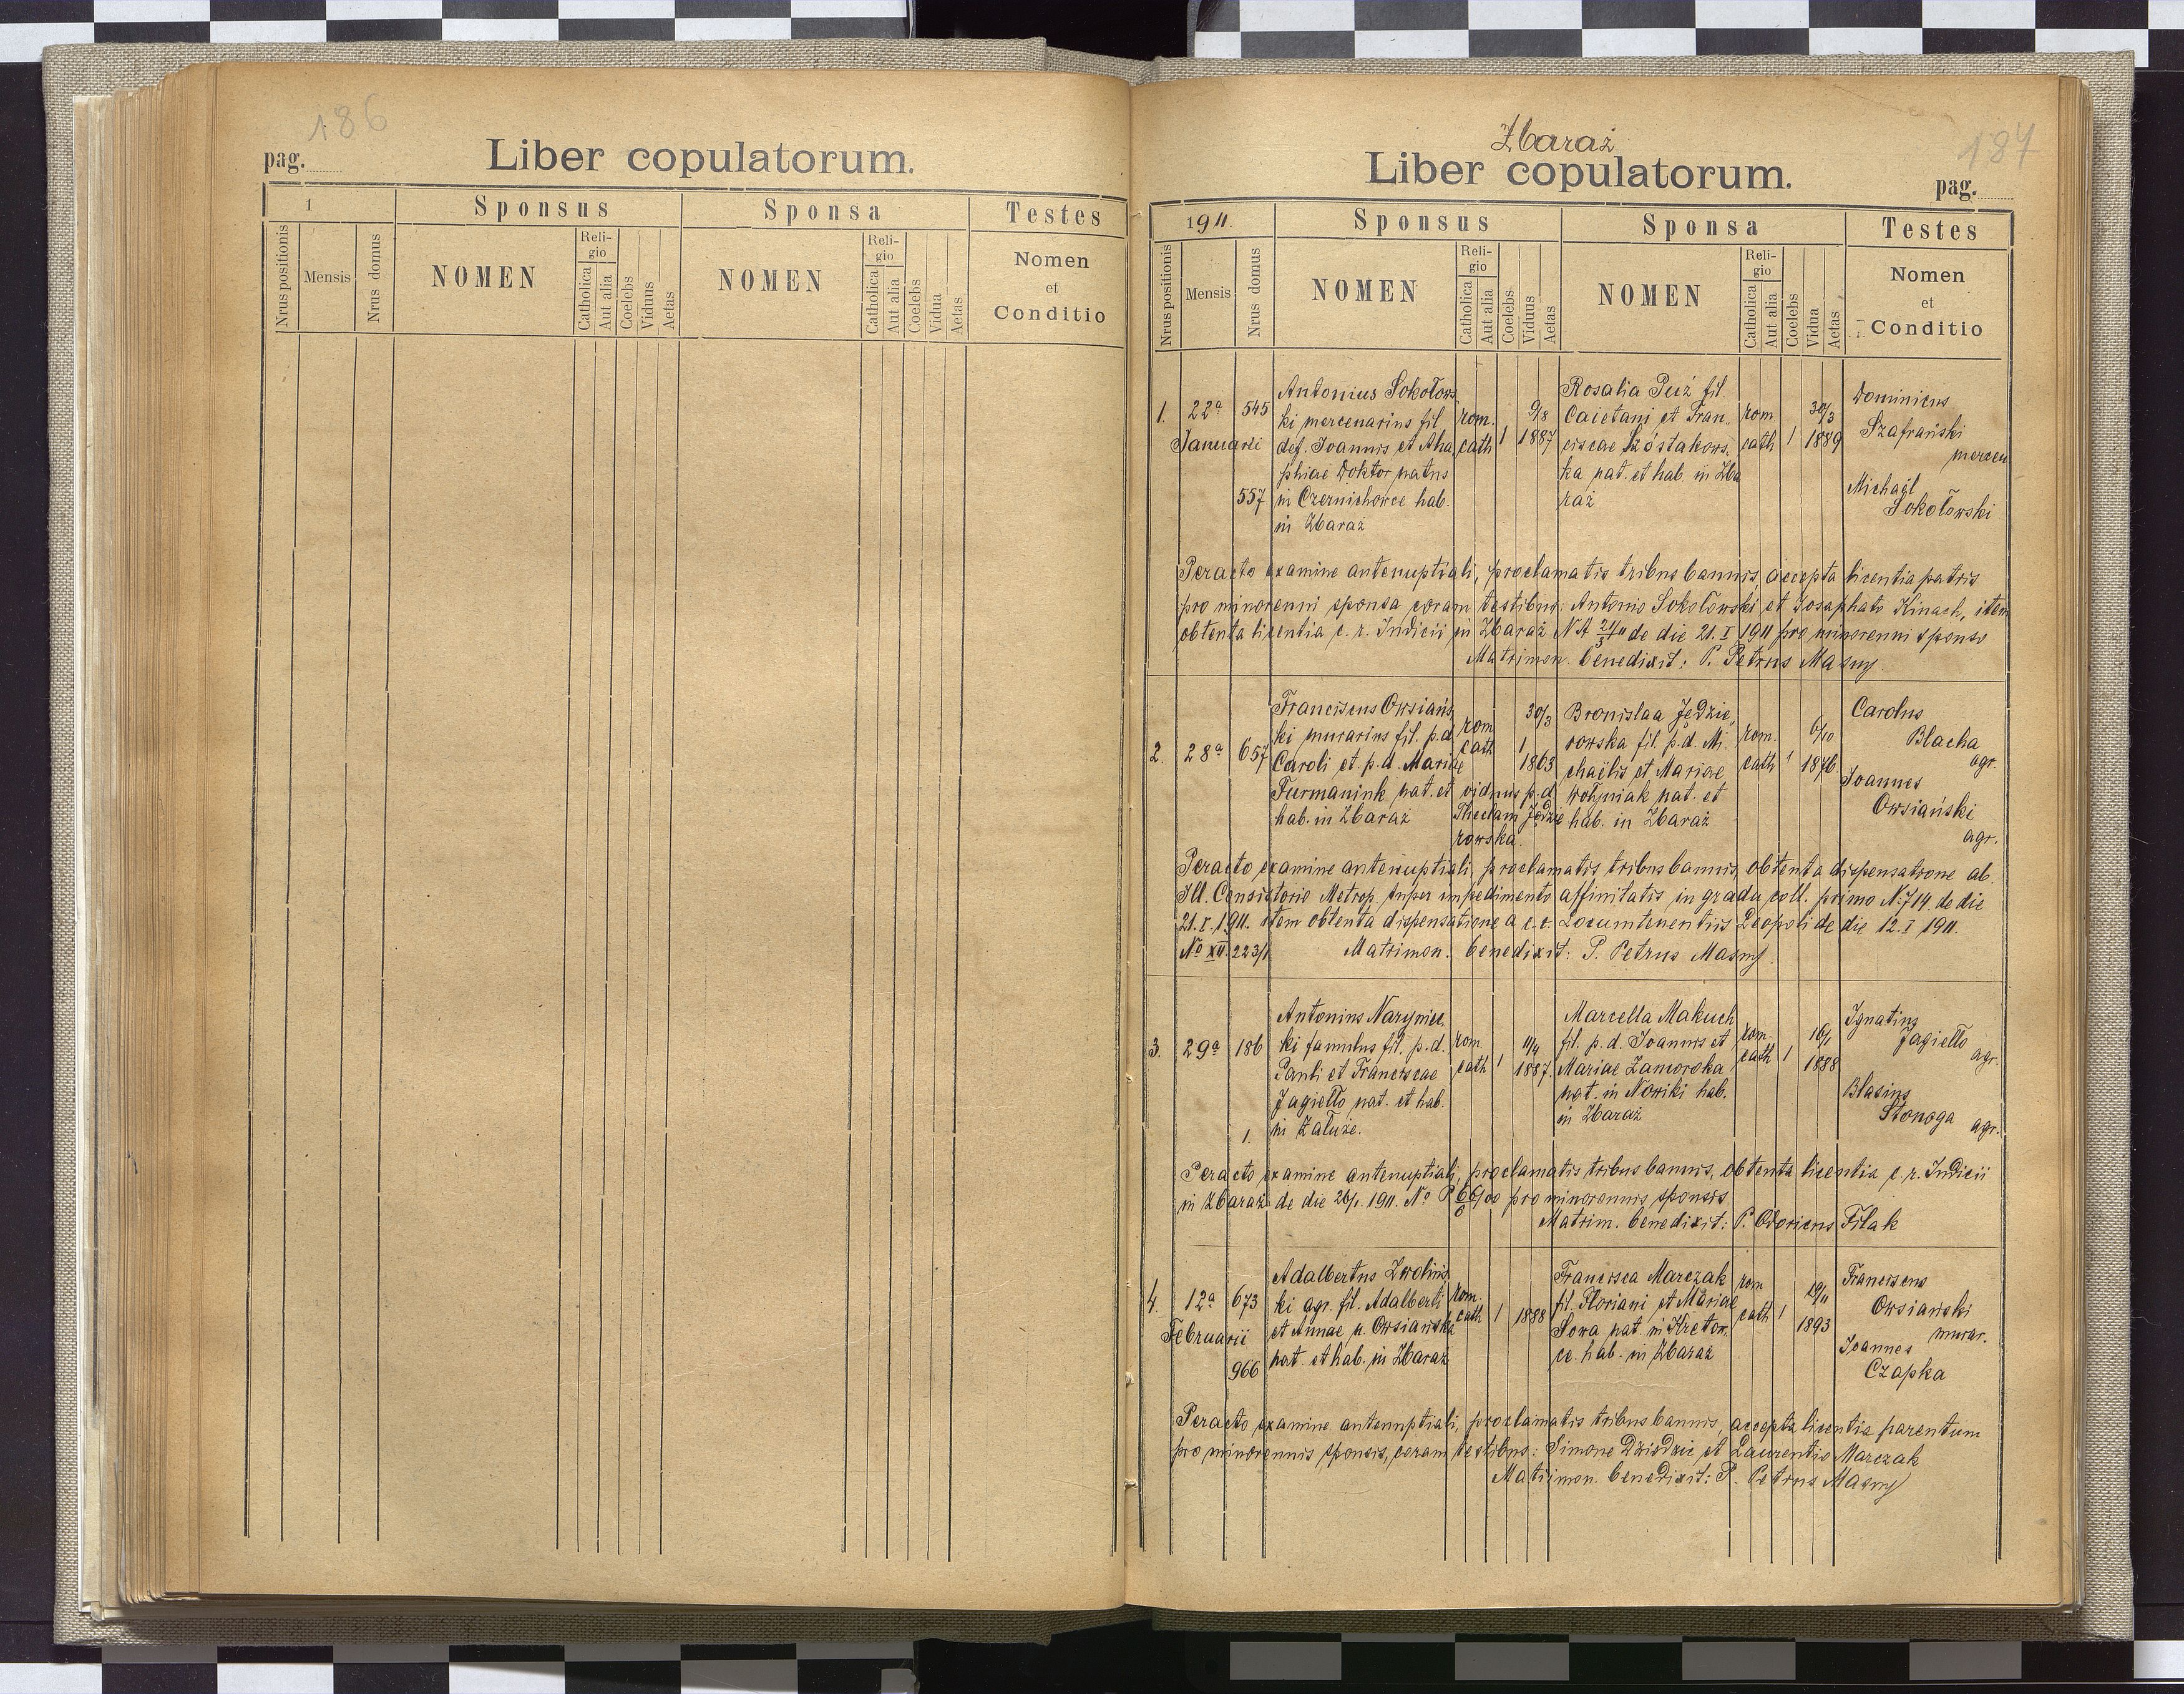 186
pag.
Liber copulatorum.
1
Sponsus
Sponsa
Testes
Nrus positionis
Mensis
Nrus domus
NOMEN
Religio
Catholica
Aut alia
Coelebs
Viduus
Aetas
NOMEN
Religio
Catholica
Aut alia
Coelebs
Vidua
Aetas
Nomen
et
Conditio
Zbaraż
187
Liber copulatorum.
pag.
1911.
Sponsus
Sponsa
Testes
Nrus positionis
Mensis
Nrus domus
NOMEN
Religio
Catholica
Aut alia
Coelebs
Viduus
Aetas
NOMEN
Religio
Catholica
Aut alia
Coelebs
Vidua
Aetas
Nomen
et
Conditio
1.
22ª
Januarii
545
557
Antonius Sokołows
ki mercenarius fil
def. Joannis et Aha
phiae Doktor natus
in Czernichowce hab.
in Zbaraż
rom.
cath
1
9/8
1887
Rosalia Puź fil
Caietani et Fran
ciscae Szóstakows
ka nat. et hab. in Zba
raż
rom
cath
1
30/3
1889
Dominicus
Szafrański
mercen
Michaël
Sokołowski
Peracto examine antenuptiali, proclamatis tribus bannis, accepta licentia patris
pro minorenni sponsa coram testibus: Antonio Sokołowski et Josaphato Kinach, item
obtenta licentia c. r. Judicii in Zbaraż de die 21. I 1911 pro minorenni sponso
Matrimon. benedixit: P. Petrus Masny.
2.
28ª
657
Franciscus Owsiańs
ki murarius fil. p.d.
Caroli et p.d. Mariae
Furmaniuk nat. et
hab. in Zbaraż
rom
cath
1
viduus p.d.
Theclam Jędzie
rowska
30/3
1863
Bronislaa Jędzie,
rowska fil. p.d. Mi
chaëlis et Mariae
Woźniak nat. et
hab. in Zbaraż
rom.
cath
1
6/10
1876
Carolus
Blacha
agr.
Joannes
Owsiański
agr.
Peracto examine antenuptiali, proclamatis tribus bannis, obtenta dispensatione ab
Ill. Consistorio Metrop. super impedimento affinitatis in gradu coll. primo N. 714. de die
21. I. 1911. item obtenta dispensatione a c.r. Locumtenentiis Leopoli de die 12. I 1911.
No XII. 223/1
Matrimon. benedixit: P. Petrus Masny.
3.
29ª
186
1.
Antonius Narynies
ki famulus fil. p.d.
Pauli et Franciscae
Jagiełło nat. et hab.
in Załuże.
rom.
cath
1
11/4
1887.
Marcella Makuch
fil. p.d. Joannis et
Mariae Zamoroka
nat. in Nowiki hab.
in Zbaraż
rom.
cath
1
16/1
1888
Ignatius
Jagiełło
agr.
Blasius
Stonoga
agr.
Peracto examine antenuptiali, proclamatis tribus bannis, obtenta licentia c. r. Judicii
in Zbaraż de die 26/1. 1911. No P. pro minorennis sponsis
Matrim. benedixit: P. Odoricus Filak
4.
12ª
Februarii
673
966
Adalbertus Zwolińs
ki agr. fil. Adalberti
et Annae n. Owsiańska
nat. et hab. in Zbaraż
rom.
cath
1
1888
Francisca Marczak
fil. Floriani et Mariae
Sowa nat. in Kretow
ce. hab. in Zbaraż
rom
cath
1
19/11
1893
Franciscus
Owsiański
murar.
Joannes
Czapka
Peracto examine antenuptiali, proclamatis tribus bannis, accepta licentia parentum
pro minorennis sponsis, coram testibus: Simone Dziedzic et Laurentio Marczak
Matrimon. benedixit: P. Petrus Masny